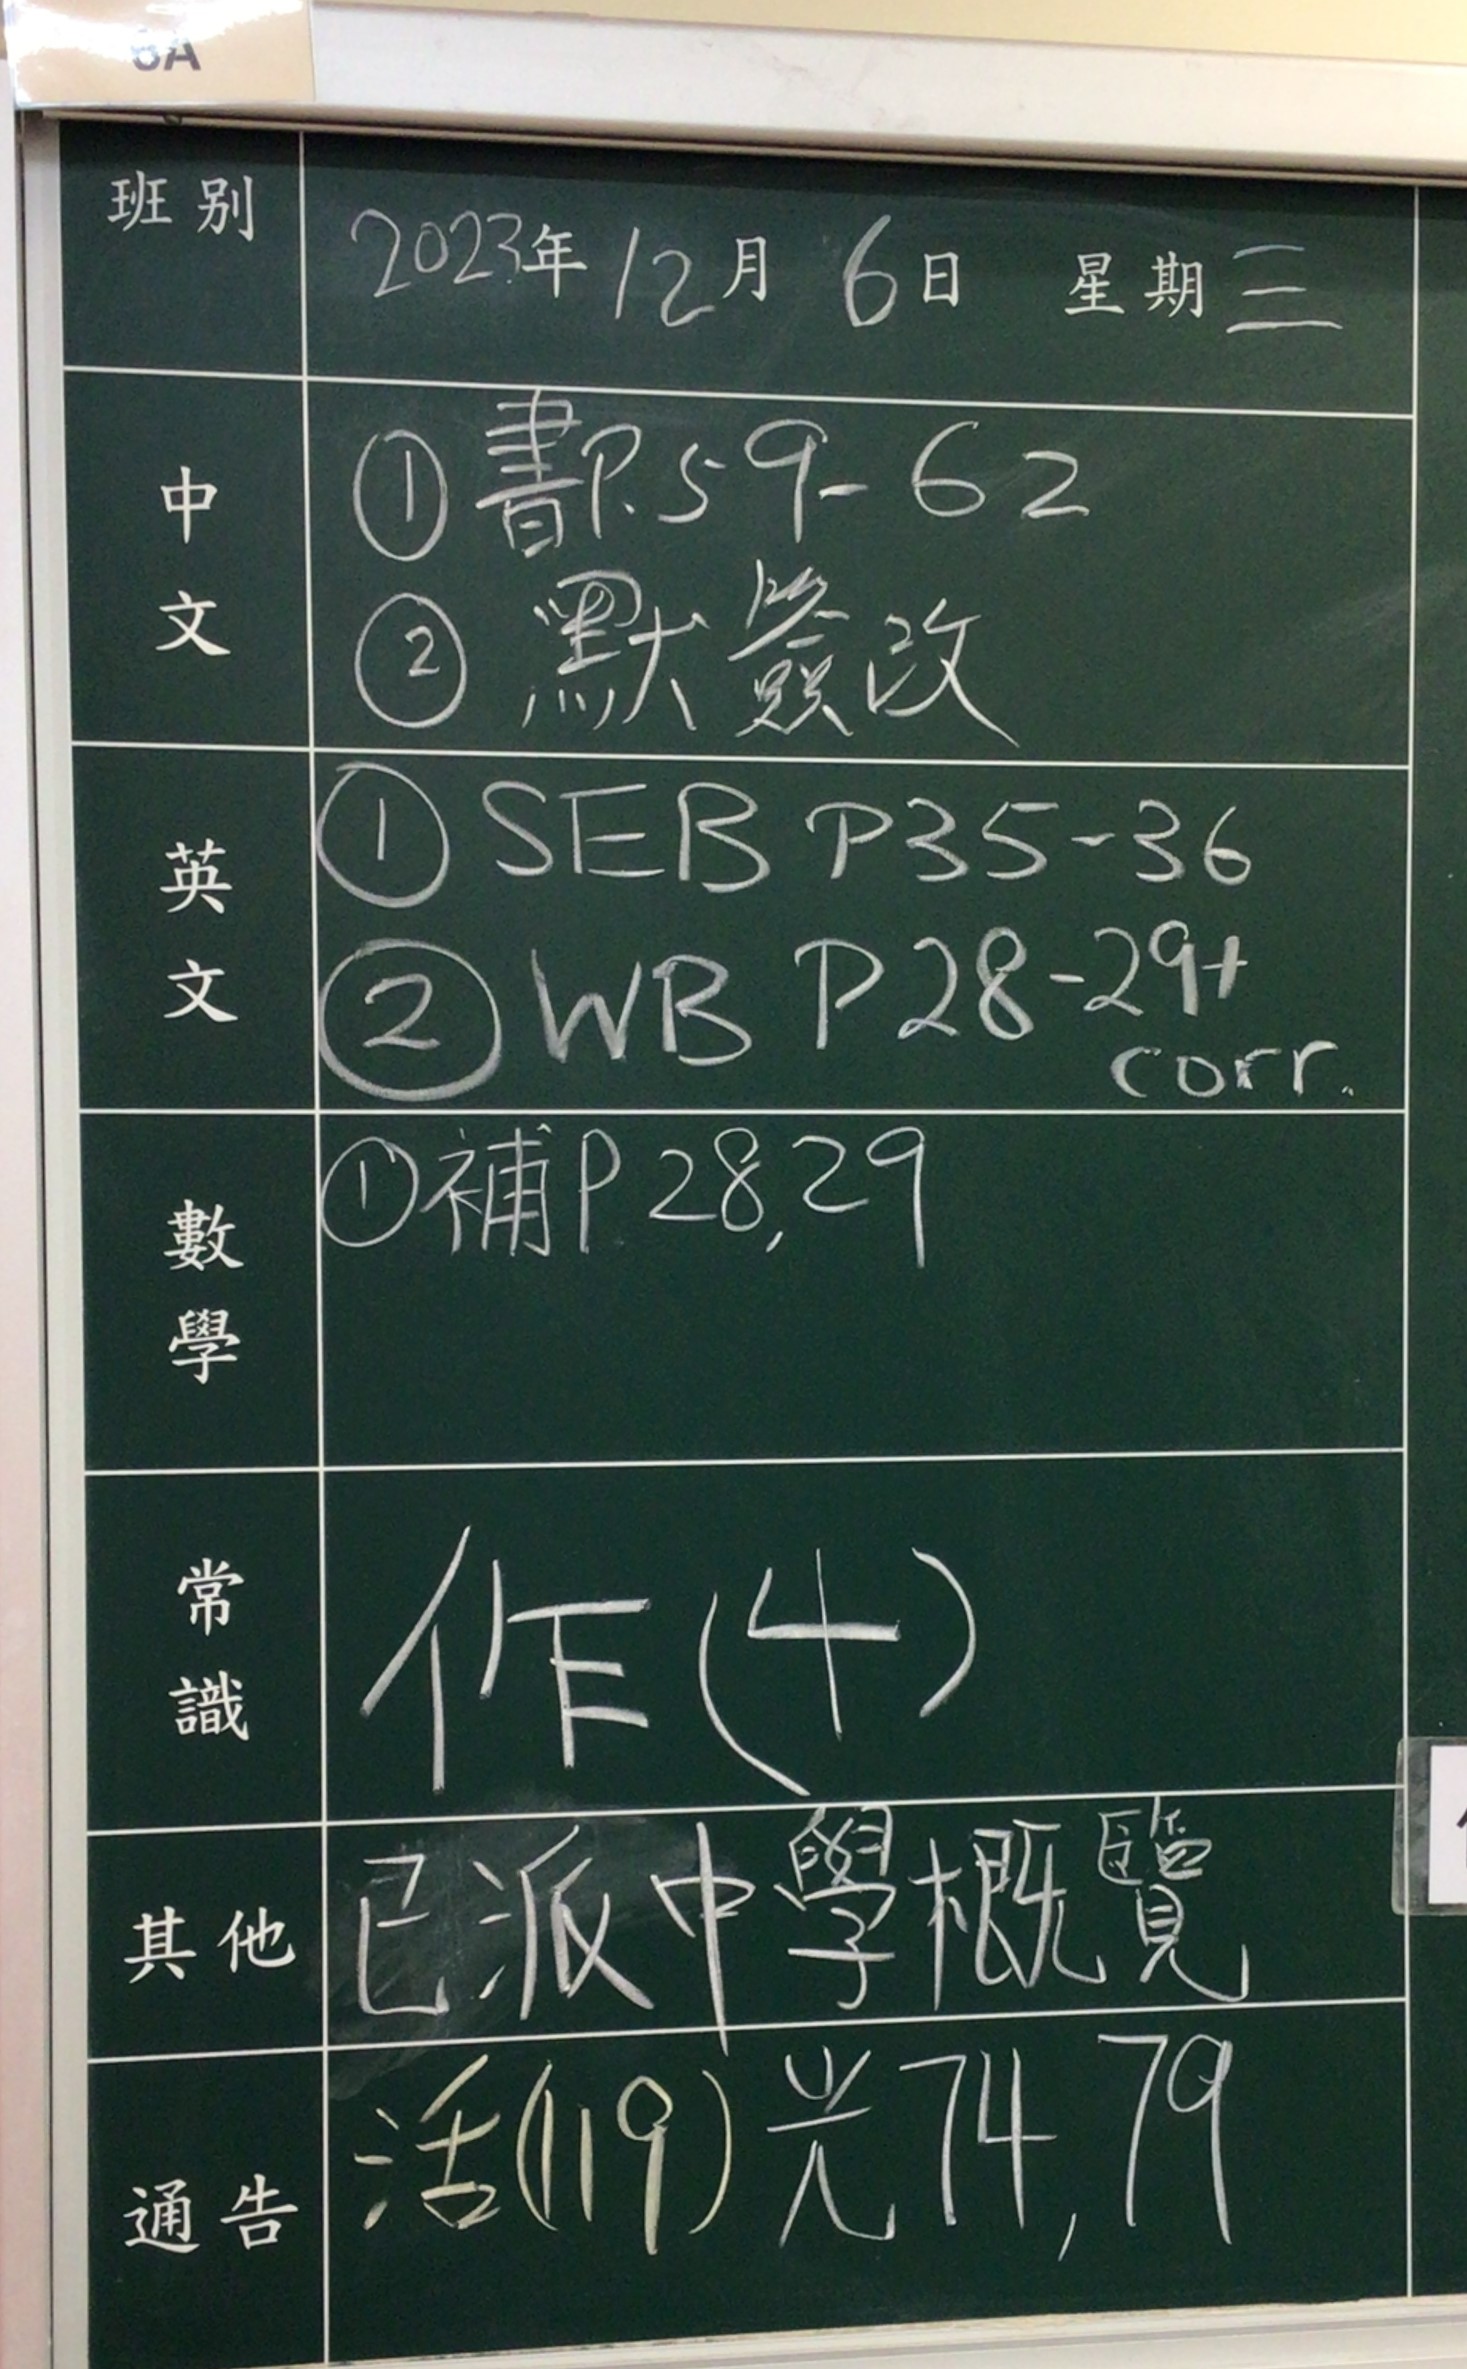 6A
班別
2023年12月6日 星期三
中文
①書P.59-62
② 默簽改
英文
① SEB P35-36
② WB P28-29+
corr.
數學
①補P28,29
常識
作(4)
其他
已派中學概覽
通告
活(119)光74,79